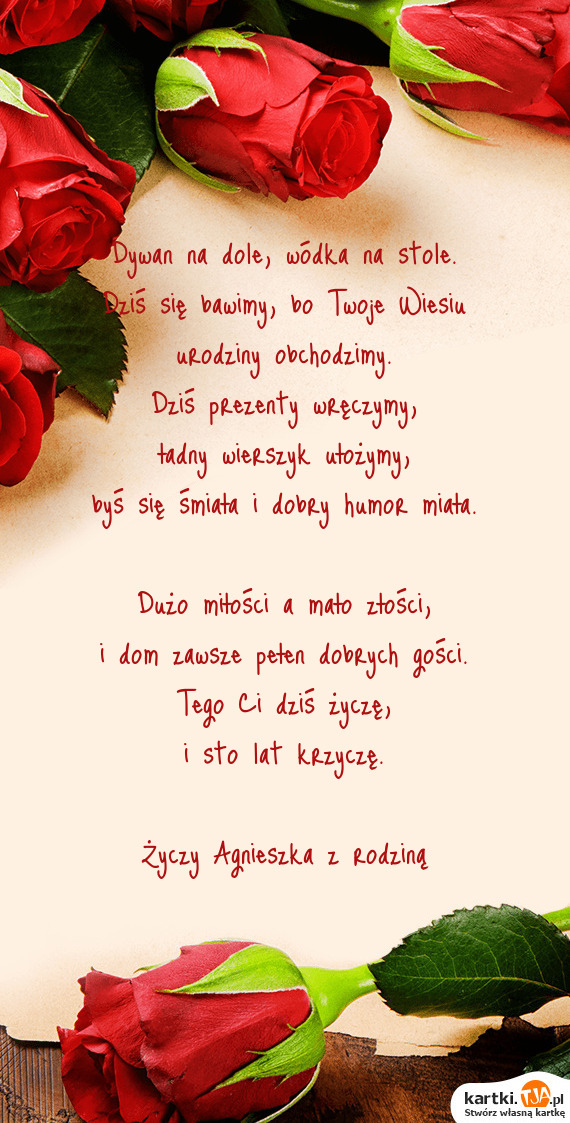 Dywan na dole, wódka na stole.
Dziś się bawimy, bo Twoje Wiesiu
urodziny obchodzimy.
Dziś prezenty wręczymy,
ładny wierszyk ułożymy,
byś się śmiała i dobry humor miała.
Dużo miłości a mało złości,
i dom zawsze pełen dobrych gości.
Tego Ci dziś życzę,
i sto lat krzyczę.
Życzy Agnieszka z rodziną
kartki.TJA.pl
Stwórz własną kartkę